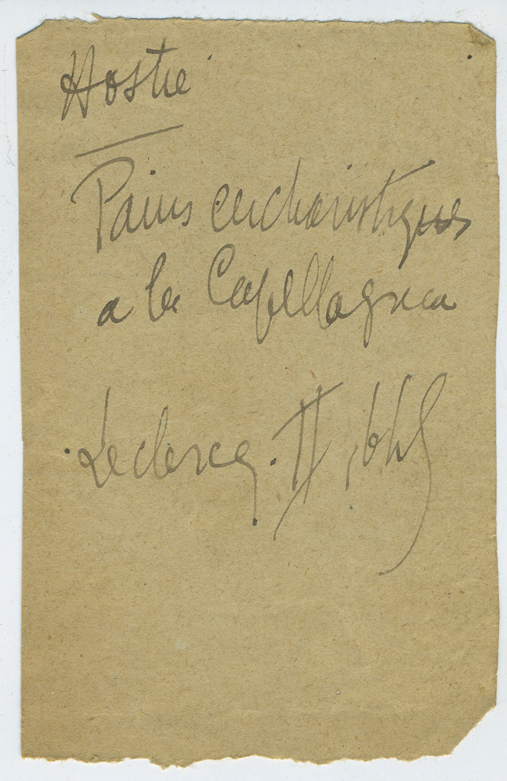 Hostie
Pains eucharistiques
a la Capella greca
Leclercq. II,